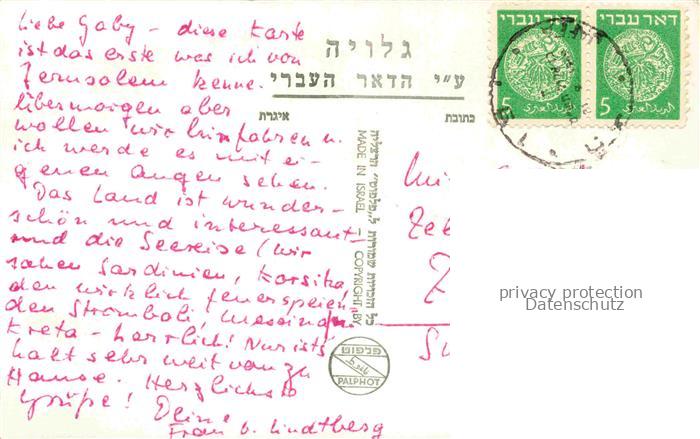 Liebe Gaby – diese Karte
ist das erste was ich von
Jerusalem kenne.
Übermorgen aber
wollen wir hinfahren u.
ich werde es mit ei-
genen Augen sehen.
Das Land ist wunder-
schön und interessant
und die Seereise (wir
sahen Sardinien, Korsika,
den wirklich feuerspeien-
den Stromboli, Messina,
Kreta – herrlich! Nur ists
halt sehr weit von zu
Hause. Herzlichste
Grüße! Deine
Frau v. Lindtberg
גלויה
ע"י הדאר העברי
איגרת
כתובת
כל הזכויות שמורות ל"פלפוט" הרצליה
MADE IN ISRAEL – COPYRIGHT BY
פלפוט
PALPHOT
דאר עברי
5
البريد العبري
דאר עברי
5
البريد العبري
privacy protection
Datenschutz